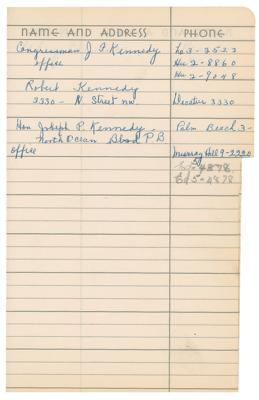 NAME AND ADDRESS PHONE
Congressman J F Kennedy Lo 3-2522
office Hu 2-8860
Hu 2-9048
Robert Kennedy
3330 - N. Street NW. Decatur 3330
Hon Joseph P. Kennedy. Palm Beach 3-
North Ocean Blvd P.B
office Murray Hill 9-2220
4878
El 5-4878